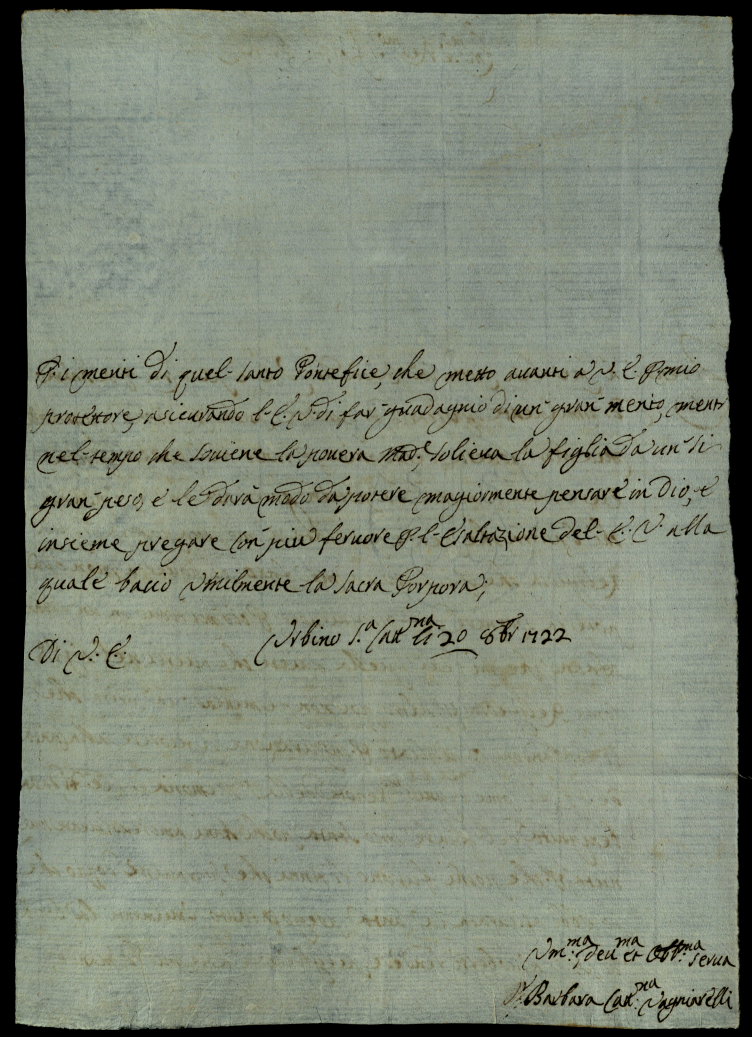 P. i meriti di quel santo Pontefice, che metto auanti a V. E. P. mio
protettore, asicurando l. E. V. di far guadagnio di un gran merito, mentr
nel tempo che souiene la pouera Mad.e, solieua la figlia da un si
gran peso, e le darà modo da potere magiormente pensare in Dio, e
insieme pregare con più feruore P. l. Esaltazione del. E. V. alla
quale bacio Vmilmente la Sacra Porpora;
Vrbino S.a Catt.na li 20 8br 1722
Di V. E.
Vm.ma Deu.ma et Obb.ma serua
Sr. Barbara Catt.na Vagniarelli